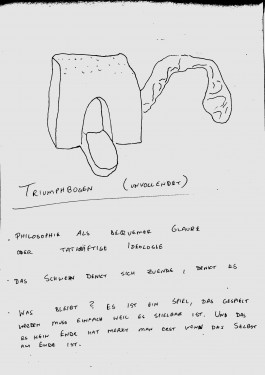 TRIUMPHBOGEN (UNVOLLENDET)
- PHILOSOPHIE ALS BEQUEMER GLAUBE
ODER TATKRÄFTIGE IDEOLOGIE
- DAS SCHWEIN DENKT SICH ZUENDE, DENKT ES
- WAS BLEIBT? ES IST EIN SPIEL, DAS GESPIELT
WERDEN MUSS EINFACH WEIL ES SPIELBAR IST. UND DAS
ES KEIN ENDE HAT MERKT MAN ERST WENN DAS SELBST
AM ENDE IST.